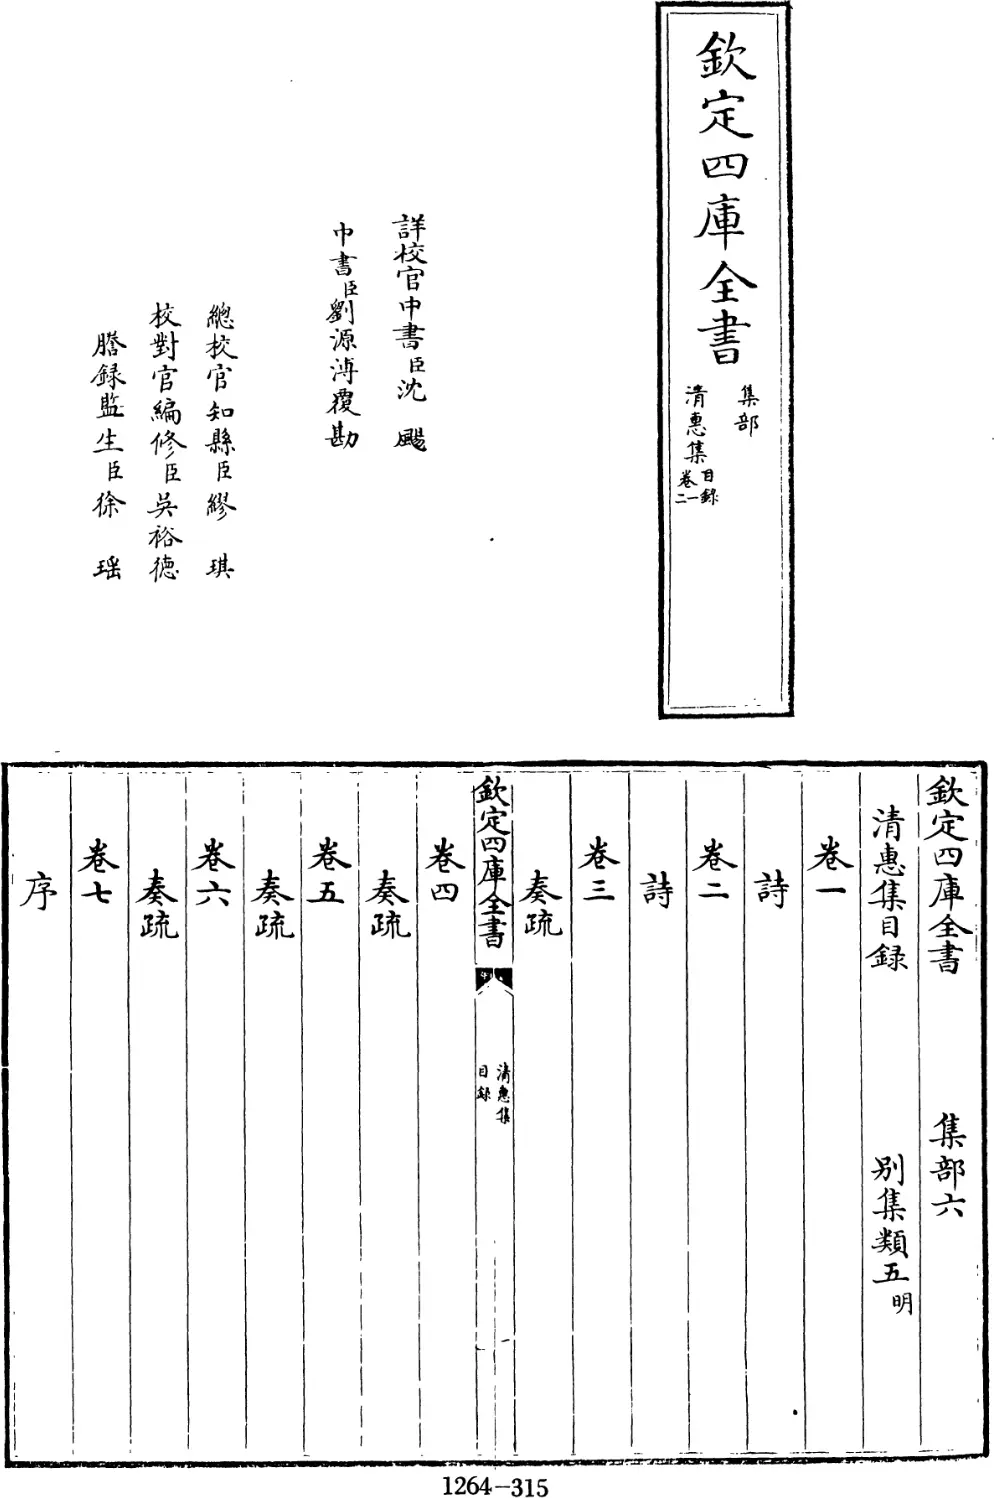 欽定四庫全書
集部
清惠集
目録
卷一二
詳校官中書臣沈 颺
中書臣劉源溥覆勘
總校官知縣臣繆 琪
校對官編修臣吳裕德
謄録監生臣徐 瑶
欽定四庫全書 集部六
清惠集目録 别集類五 明
卷一
詩
卷二
詩
卷三
奏疏
欽定四庫全書
清惠集
目録
一
卷四
奏疏
卷五
奏疏
卷六
奏疏
卷七
序
1264-315